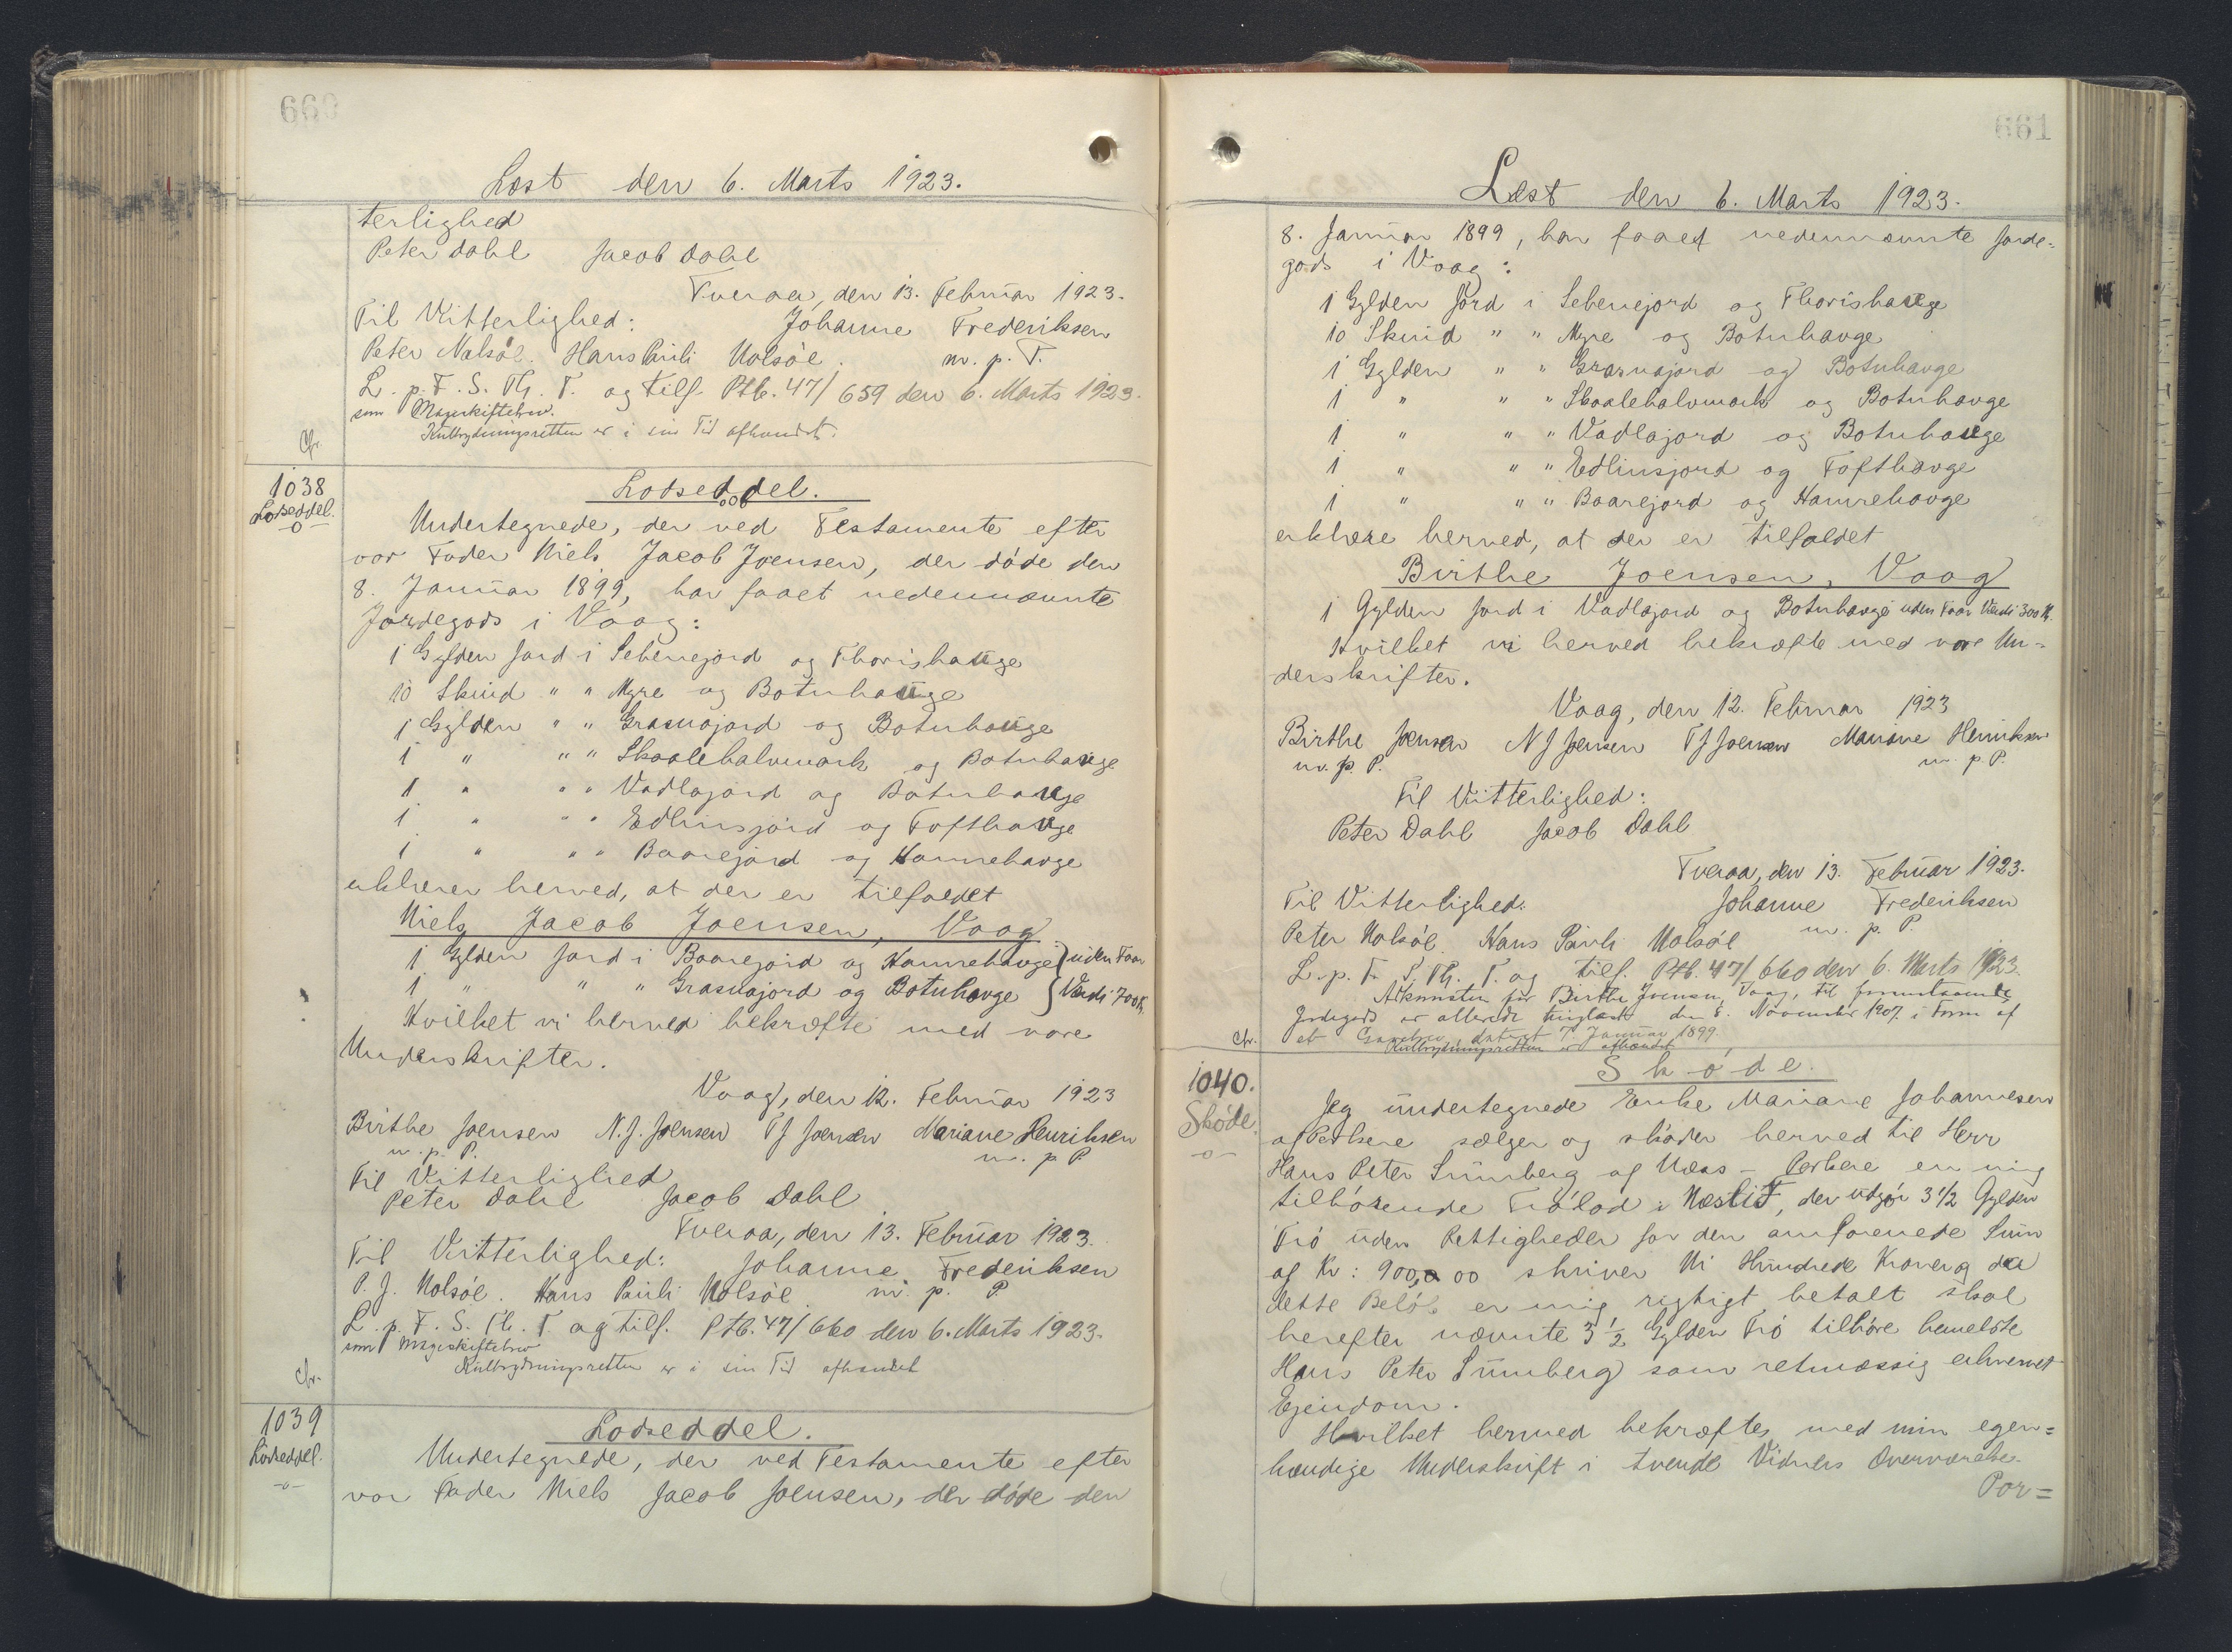 660
Læst den 6. Marts 1923.
terlighed
Peter Dahl Jacob Dahl
Tveraa, den 13. Februar 1923.
Til Vitterlighed: Johanne Frederiksen
Peter Nolsöe. Hans Pauli Nolsöe. m. p. P.
L. p. F. S. Th. T. og tilf. Ptb. 47/659 den 6. Marts 1923.
som Mageskiftebrev.
Kulbrydningsretten er i sin Tid afhændet.
1038
Lodseddel.
-o-
Lodseddel.
Undertegnede, der ved Testamente efter
vor Fader Niels Jacob Joensen, der döde den
8. Januar 1899, har faaet nedennævnte
Jordegods i Vaag:
1 Gylden Jord i Sebenejord og Thorishauge
10 Skind " " Myre og Botnhauge
1 Gylden " " Grasnajord og Botnhauge
1 " " " Skaalehalvmark og Botnhauge
1 " " " Vadlajord og Botnhauge
1 " " " Edlinsjord og Tofthauge
1 " " " Baarejord og Hamrehauge
erklærer herved, at der er tilfaldet
Niels Jacob Joensen, Vaag
1 Gylden Jord i Baarejord og Hamrehauge } uden Faar
1 " " " Grasnajord og Botnhauge } Værdi 700 Kr.
Hvilket vi herved bekræfte med vore
Underskrifter.
Vaag, den 12. Februar 1923
Birthe Joensen N. J. Joensen T J Joensen Mariane Henriksen
m. p. P. m. p. P.
Til Vitterlighed
Peter Dahl Jacob Dahl
Tveraa, den 13. Februar 1923.
Til Vitterlighed: Johanne Frederiksen
P. J. Nolsöe. Hans Pauli Nolsöe. m. p. P
L. p. F. S. Th. T. og tilf. Ptb. 47/660 den 6. Marts 1923.
som Mageskiftebrev
Kulbrydningsretten er i sin Tid afhændet
1039
Lodseddel.
-o-
Lodseddel.
Undertegnede, der ved Testamente efter
vor Fader Niels Jacob Joensen, der döde den
661
Læst den 6. Marts 1923.
8. Januar 1899, har faaet nedennævnte Jorde=
gods i Vaag:
1 Gylden Jord i Sebenejord og Thorishauge
10 Skind " " Myre og Botnhauge
1 Gylden " " Grasnajord og Botnhauge
1 " " " Skaalehalvmark og Botnhauge
1 " " " Vadlajord og Botnhauge
1 " " " Edlinsjord og Tofthauge
1 " " " Baarejord og Hamrehauge
erklære herved, at der er tilfaldet
Birthe Joensen, Vaag
1 Gylden Jord i Vadlajord og Botnhauge uden Faar Værdi 300 Kr.
Hvilket vi herved bekræfte med vore Un=
derskrifter.
Vaag, den 12. Februar 1923
Birthe Joensen N J Joensen T J Joensen Mariane Henriksen
m. p. P. m. p. P.
Til Vitterlighed:
Peter Dahl Jacob Dahl
Tveraa, den 13. Februar 1923.
Til Vitterlighed: Johanne Frederiksen
Peter Nolsöe. Hans Pauli Nolsöe m. p. P.
L. p. F. S. Th. T. og tilf. Ptb. 47/660 den 6. Marts 1923.
Adkomsten for Birthe Joensen, Vaag, til foranstaaende
Jordegods er allerede tinglæst den 8. November 1907 i Form af
et Gavebrev dateret 7. Januar 1899.
Kulbrydningsretten er afhændet
1040.
Sköde.
-o-
Sköde.
Jeg undertegnede Enke Mariane Johannesen
af Porkere sælger og sköder herved til Herr
Hans Peter Sunnberg af Næs - Porkere en mig
tilhörende Trölod i Næslid, der udgör 3 1/2 Gylden
Trö uden Rettigheder for den omforenede Sum
af Kr: 900,00 skriver Ni Hundrede Kroner og da
dette Belöb er mig rigtigt betalt skal
herefter nævnte 3 1/2 Gylden Trö tilhöre bemeldte
Hans Peter Sunnberg som retmæssig erhvervet
Ejendom.
Hvilket herved bekræftes med min egen=
hændige Underskrift i tvende Vidners Overværelse.
Por=